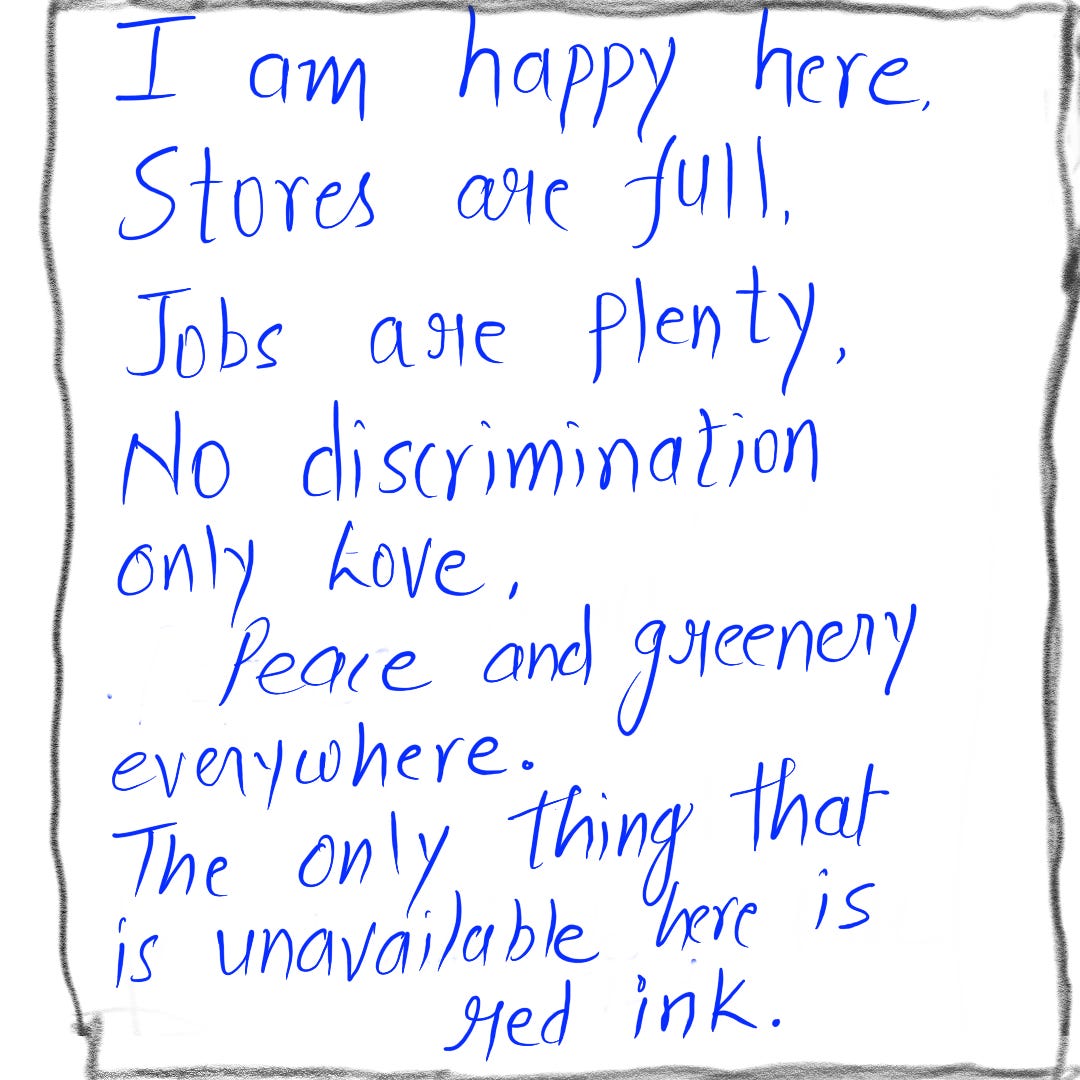 I am happy here.
Stores are full,
Jobs are plenty,
No discrimination
only Love,
Peace and greenery
everywhere.
The only thing that
is unavailable here is
red ink.